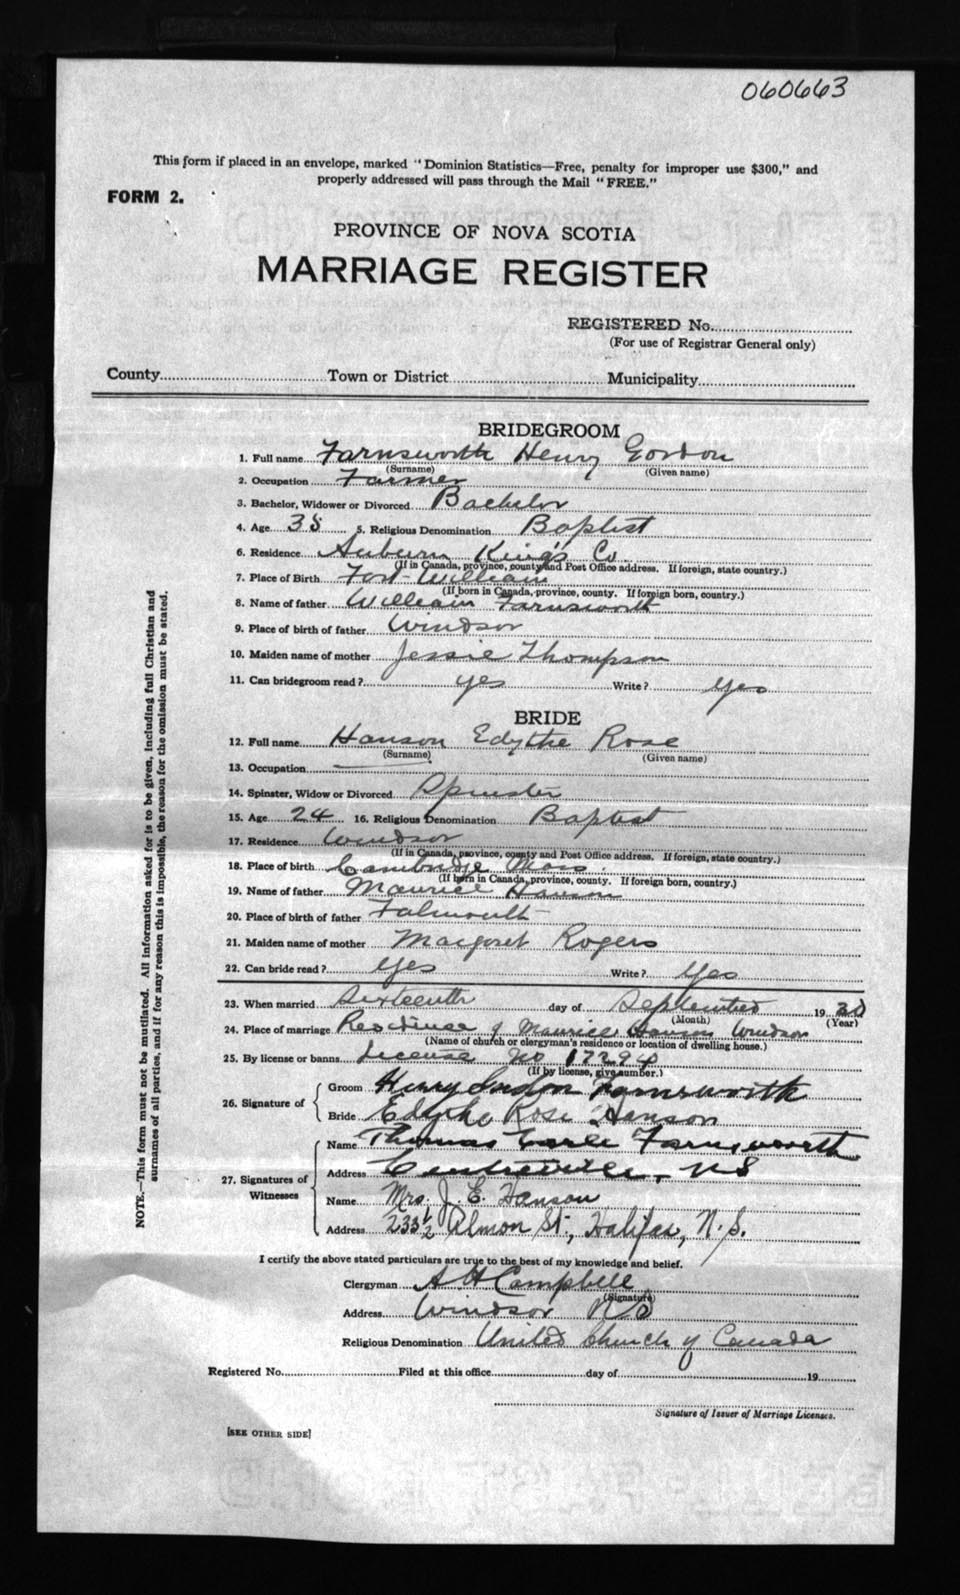 060663
This form if placed in an envelope, marked "Dominion Statistics—Free, penalty for improper use $300," and
properly addressed will pass through the Mail "FREE."
FORM 2.
PROVINCE OF NOVA SCOTIA
MARRIAGE REGISTER
REGISTERED No.
(For use of Registrar General only)
County Town or District Municipality
BRIDEGROOM
1. Full name Farnsworth Henry Gordon
(Surname) (Given name)
2. Occupation Farmer
3. Bachelor, Widower or Divorced Bachelor
4. Age 38 5. Religious Denomination Baptist
6. Residence Auburn King's Co
(If in Canada, province, county and Post Office address. If foreign, state country.)
7. Place of Birth Fort William
(If born in Canada, province, county. If foreign born, country.)
8. Name of father William Farnsworth
9. Place of birth of father Windsor
10. Maiden name of mother Jessie Thompson
11. Can bridegroom read? yes Write? yes
BRIDE
12. Full name Hanson Edythe Rose
(Surname) (Given name)
13. Occupation
14. Spinster, Widow or Divorced Spinster
15. Age 24 16. Religious Denomination Baptist
17. Residence Windsor
(If in Canada, province, county and Post Office address. If foreign, state country.)
18. Place of birth Cambridge Mass.
(If born in Canada, province, county. If foreign born, country.)
19. Name of father Maurice Hanson
20. Place of birth of father Falmouth
21. Maiden name of mother Margaret Rogers
22. Can bride read? Yes Write? Yes
23. When married Sixteenth day of September 1930
(Month) (Year)
24. Place of marriage Residence of Maurice Hanson Windsor
(Name of church or clergyman's residence or location of dwelling house.)
25. By license or banns License No 17294
(If by license, give number.)
26. Signature of Groom Henry Gordon Farnsworth
Bride Edythe Rose Hanson
27. Signatures of Witnesses
Name Thomas Earle Farnsworth
Address Centreville, N S
Name Mrs. J. E. Hanson
Address 233½ Almon St., Halifax, N.S.
I certify the above stated particulars are true to the best of my knowledge and belief.
Clergyman A H Campbell
(Signature)
Address Windsor N S
Religious Denomination United Church of Canada
Registered No. Filed at this office day of 19
Signature of Issuer of Marriage Licenses.
[SEE OTHER SIDE]
NOTE.—This form must not be mutilated. All information asked for is to be given, including full Christian and
surnames of all parties, and if for any reason this is impossible, the reason for the omission must be stated.